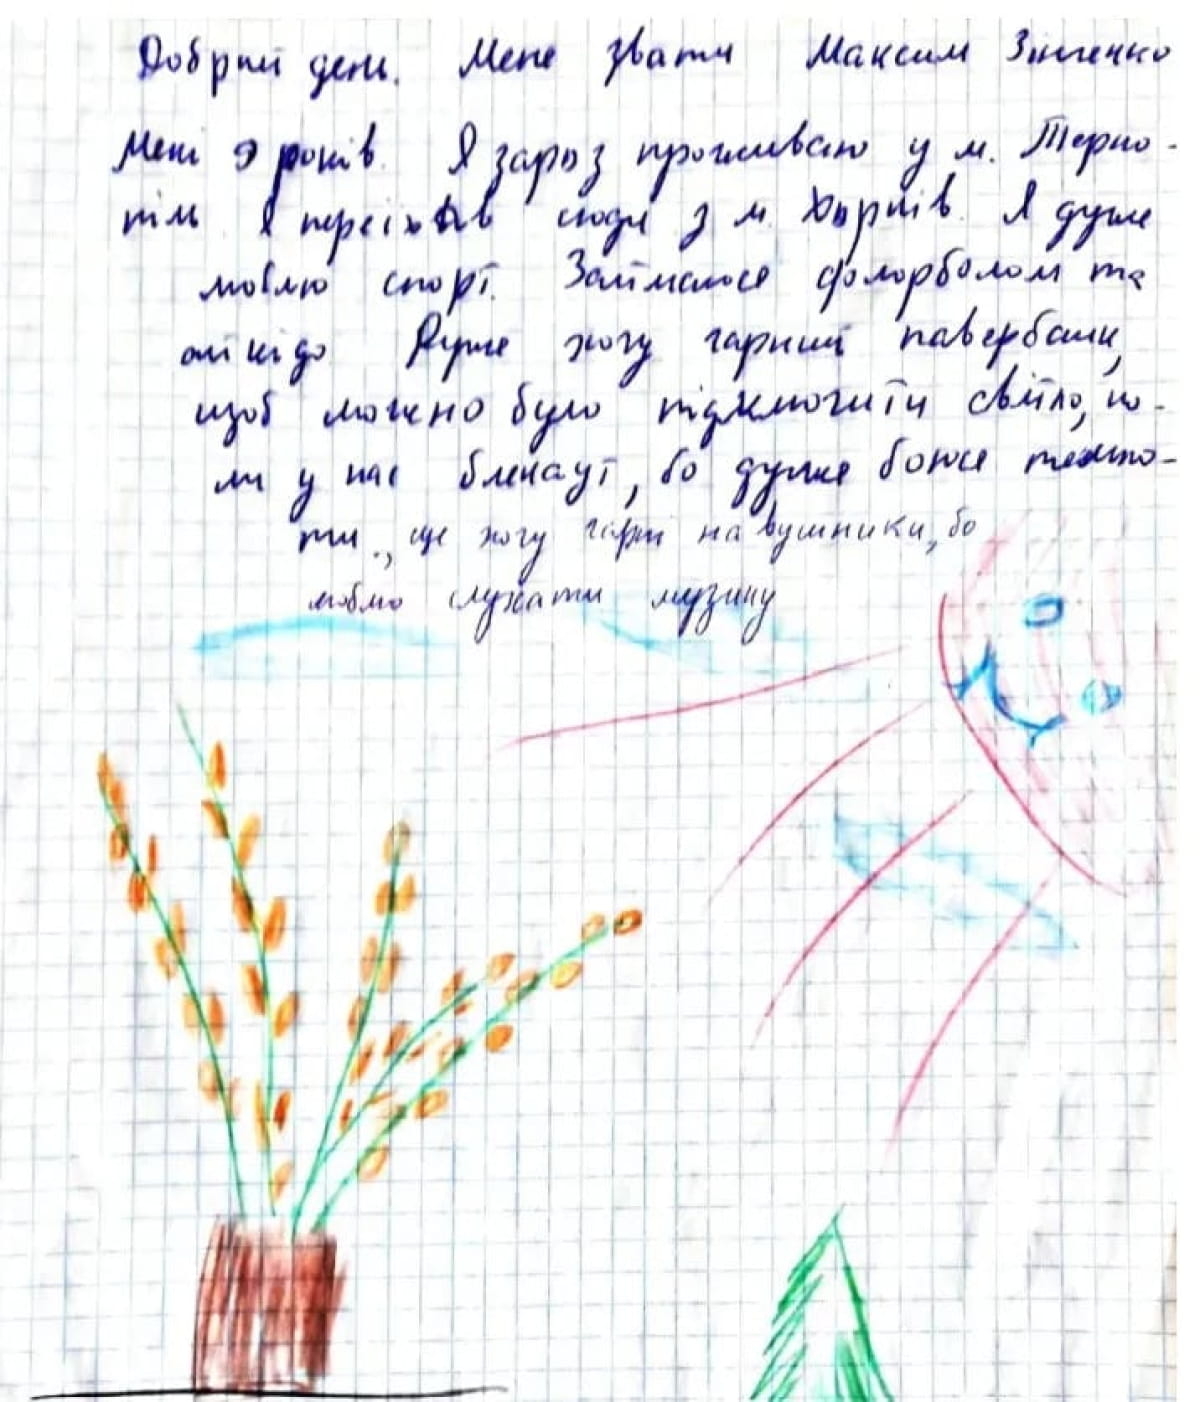 Добрий день. Мене звати Максим Зінченко
Мені 9 років. Я зараз проживаю у м. Терно-
піль Я переїхав сюди з м. Харків. Я дуже
люблю спорт. Займаюся флорболом та
айкідо Дуже хочу гарний павербанк,
щоб можно було підключити світло, ко-
ли у нас блекаут, бо дуже боюся темно-
ти., ще хочу гарні навушники, бо
люблю слухати музику